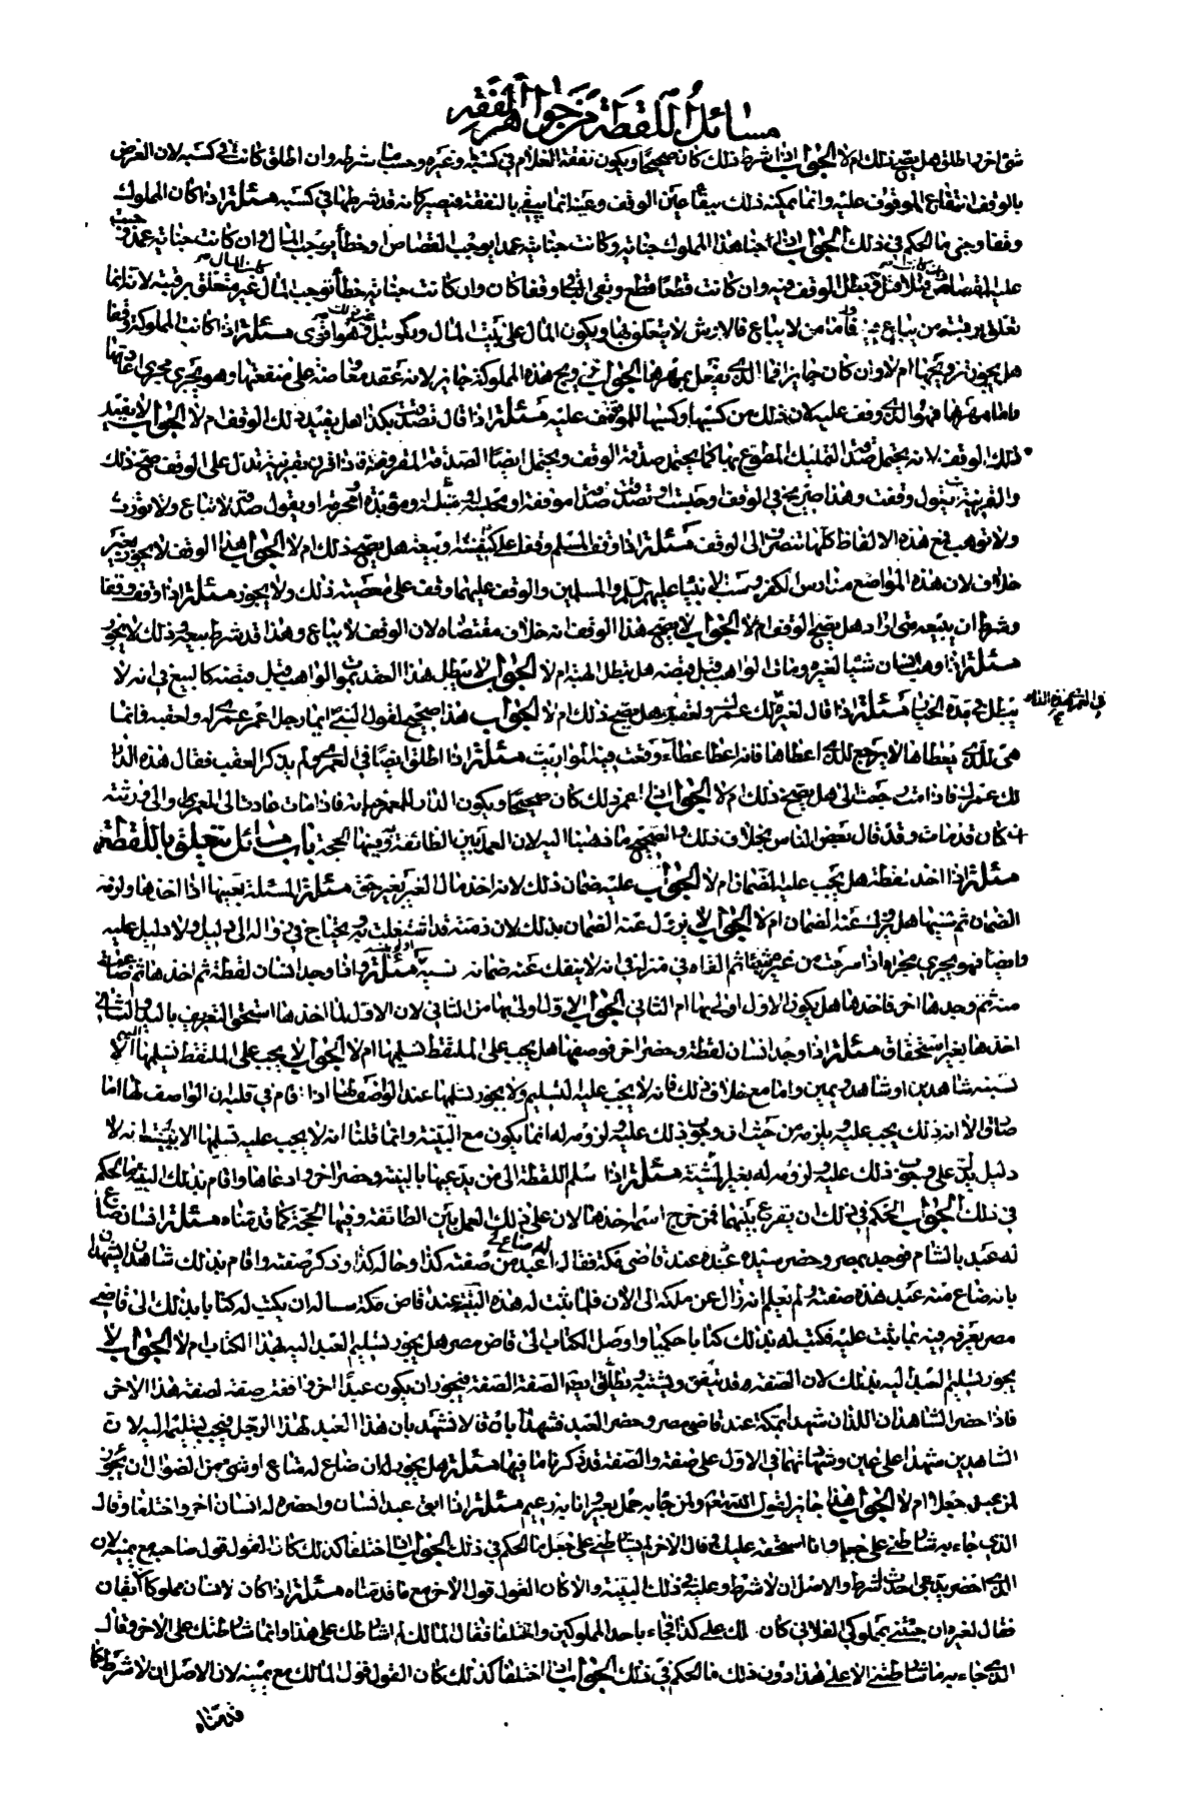 مسائل اللقطة من جواهر الفقه
شئ اخر و اطلق هل يصح ذلك ام لا الجواب اذا شرط ذلك كان صحيحا و يكون نفقة الغلام في كسبه و غيره و حسب ما شرطه و ان اطلق كانت في كسبه لان الغرض
بالوقف انتفاع الموقوف عليه و انما يمكنه ذلك ببقاء عين الوقف و عينه انما يبقى بالنفقة فيصير كانه قد شرطها في كسبه مسئلة اذا كان المملوك
وقفا و جنى ما الحكم في ذلك الجواب اذا جنا هذا المملوك جناية و كانت جنايته عمدا يوجب القصاص او خطأ يوجب المال و ان كانت جنايته عمدا وجب
عليه القصاص فان كانت قتلا قتل و بطل الوقف فيه و ان كانت قطعا قطع و بقى الباقي وقفا كان و ان كانت جناية خطأ توجب المال كان المال غير متعلق برقبته لانه انما
تعلق برقبته من يباع فيه فاما من لا يباع فالارش لا يتعلق بها و يكون المال على بيت المال و يكو قيل غير ذلك و هو اقوى مسئلة اذا كانت المملوكة وقفا
هل يجوز تزويجها ام لا و ان كان جايزا فما الذي يفعل بمهرها الجواب تزويج هذه المملوكة جايز لانه عقد معاوضة على منفعتها و هو يجرى مجرى اجارتها
و اما مهرها فهو الذي وقف عليه لان ذلك من كسبها و كسبها للموقوف عليه مسئلة اذا قال تصدقت بكذا هل يفيد ذلك الوقف ام لا الجواب لا يفيد
ذلك الوقف لانه يحتمل صدقة التمليك المتطوع بها كما يحتمل صدقة الوقف و يحتمل ايضا الصدقة المفروضة فاذا قرن بقرينة تدل على الوقف صح ذلك
و القرينة ان يقول وقفت و هذا صريح في الوقف او حبست او تصدقت صدقة موقوفة او محبسة او مسبلة او مؤبدة او محرمة او يقول صدقة لا تباع و لا تورث
و لا توهب فجميع هذه الالفاظ كلها تنصرف الى الوقف مسئلة اذا وقف المسلم وقفا على كنيسة او بيعة هل يصح ذلك ام لا الجواب هذا الوقف لا يجوز بغير
خلاف لان هذه المواضع مدارس الكفر و سب الانبياء عليهم السلم و المسلمين و الوقف عليها وقف على معصية و ذلك لا يجوز مسئلة اذا وقف وقفا
و شرط ان يبيعه متى اراد هل يصح الوقف ام لا الجواب لا يصح هذا الوقف لانه خلاف مقتضاه لان الوقف لا يباع و هذا قد شرط بيعه و ذلك لا يجوز
مسئلة اذا وهب انسان شيئا لغيره و مات الواهب قبل قبضه هل تبطل الهبة ام لا الجواب لا يبطل هذا العقد بموت الواهب قبل قبضه كالبيع في انه لا
يبطل في مدة الخيار مسئلة اذا قال لغيره لك عمرك و لعقبك هل يصح ذلك ام لا الجواب هذا صحيح لقول النبي ايما رجل اعمر عمرى له و لعقبه فانما
هى للذي يعطاها لا يرجع للذي اعطاها فانه اعطا عطاء وقعت فيه المواريث مسئلة اذا اطلق ايضا في العمرى و لم يذكر العقب فقال هذه الدار
لك عمرك فاذا مت رجعت الى هل يصح ذلك ام لا الجواب اذا اعمر ذلك كان صحيحا و يكون الدار للمعمر حياته فاذا مات عادت الى المعمر او الى ورثته
ان كان قد مات و قد قال بعض الناس بخلاف ذلك و الصحيح ما ذهبنا اليه لان العمل بين الطائفة و فيها الحجة باب مسائل يتعلق باللقطة
مسئلة اذا اخذ لقطة هل يجب عليه الضمان ام لا الجواب عليه ضمان ذلك لانه اخذ مال الغير بغير حق مسئلة المسئلة بعينها اذا اخذها و لزمه
الضمان ثم ردها هل يزول عنه الضمان ام لا الجواب لا يزول عنه الضمان بذلك لان ذمته قد اشتغلت به و يحتاج في زواله الى دليل و لا دليل عليه
و ايضا فهو يجرى مجرى اذا سرق من غيره شيئا ثم القاه في منزله في انه لا ينفك عنه ضمانه مسئلة و اذا وجد انسان لقطة ثم اخذها ثم ضاعت
منه ثم وجدها اخر فاخذها هل يكون الاول اولى بها ام الثاني الجواب الاول اولى بها من الثاني لان الاول لما اخذها استحق التعريف باليد و الثاني
اخذها بغير استحقاق مسئلة اذا وجد انسان لقطة و حضر اخر فوصفها هل يجب على الملتقط تسليمها ام لا الجواب لا يجب على الملتقط تسليمها اليه الا
ببينة شاهدين او شاهد و يمين و اما مع خلاف ذلك فانه لا يجب عليه التسليم و لا يجوز تسليمها عند الواصف لها اذا قام في قلبه ان الواصف لها اما
صادق الا انه ذلك يجب عليه و يلزمه من حيث ان وجوب ذلك عليه و لزومه له انما يكون مع البينة و انما قلنا انه لا يجب عليه تسليمها الا ببينة لانه لا
دليل يدل على وجوب ذلك عليه و لزومه له بغير البينة مسئلة اذا سلم اللقطة الى من يدعيها بالبينة و حضر اخر و ادعاها و اقام بذلك البينة ما الحكم
في ذلك الجواب الحكم في ذلك ان يقرع بينهما فمن خرج اسمه اخذها لان على ذلك العمل بين الطائفة و فيها الحجة كما قدمناه مسئلة انسان ضاع
له عبد بالشام فوجد بمصر و حضر سيده عبده عند قاضى مكة فقال له ضاع لي عبد من صفته كذا و حاله كذا و ذكر صفته و اقام بذلك شاهدين يشهدان
بانه ضاع منه عبد هذه صفته و لم نعلم انه زال عن ملكه الى الان فلما ثبت له هذه البينة عند قاضى مكة ساله ان يكتب له كتابا بذلك الى قاضى
مصر يعرفه فيه بما يثبت عليه فكتب له بذلك كتابا حكميا و اوصل الكتاب الى قاضى مصر هل يجوز تسليم العبد اليه بهذا الكتاب ام لا الجواب لا
يجوز تسليم العبد اليه بذلك لان الصفة قد تتفق و تشتبه و تطابق الصفة الصفة فيجوز ان يكون عبدا اخر وافقه صفته لصفة هذا الاخر
فاذا حضر الشاهدان اللذان شهدا بمكة عند قاضى مصر و حضر العبد فشهدا بان قالا نشهد بان هذا العبد لهذا الرجل فيجب تسليمه اليه لان
الشاهدين شهدا على عين و شهادتهما في الاول على صفة و الصفة قد ذكرنا ما فيها مسئلة هل يجوز لمن ضاع له متاع او شئ من الضوال ان يجعل
لمن يجده جعلا ام لا الجواب هذا جايز لقول الله تعالى و لمن جاء به حمل بعير و انا به زعيم مسئلة اذا ابق عبد انسان و احضره له انسان اخر و اختلفا و قال
الذي جاء به شارطتني على جعل و انا استحقه عليك و قال الاخر لم اشارطك على جعل ما الحكم في ذلك الجواب اذا اختلفا كذلك كان القول قول صاحبه مع يمينه لان
الذي احضر يدعى احداث الشرط و الاصل ان لا شرط و عليه في ذلك البينة و الا كان القول قول الاخر مع ما قدمناه مسئلة اذا كان لانسان مملوكان ابقان
فقال لغيره ان جئتني بمملوكى الفلاني كان لك على كذا فجاء باحد المملوكين و اختلفا فقال المالك لم اشارطك على هذا و انما شارطتك على الاخر و قال
الذي جاء به ما شارطتني الا على هذا دون ذلك ما الحكم في ذلك الجواب اذا اختلفا كذلك كان القول قول المالك مع يمينه لان الاصل ان لا شرط كما
قدمناه